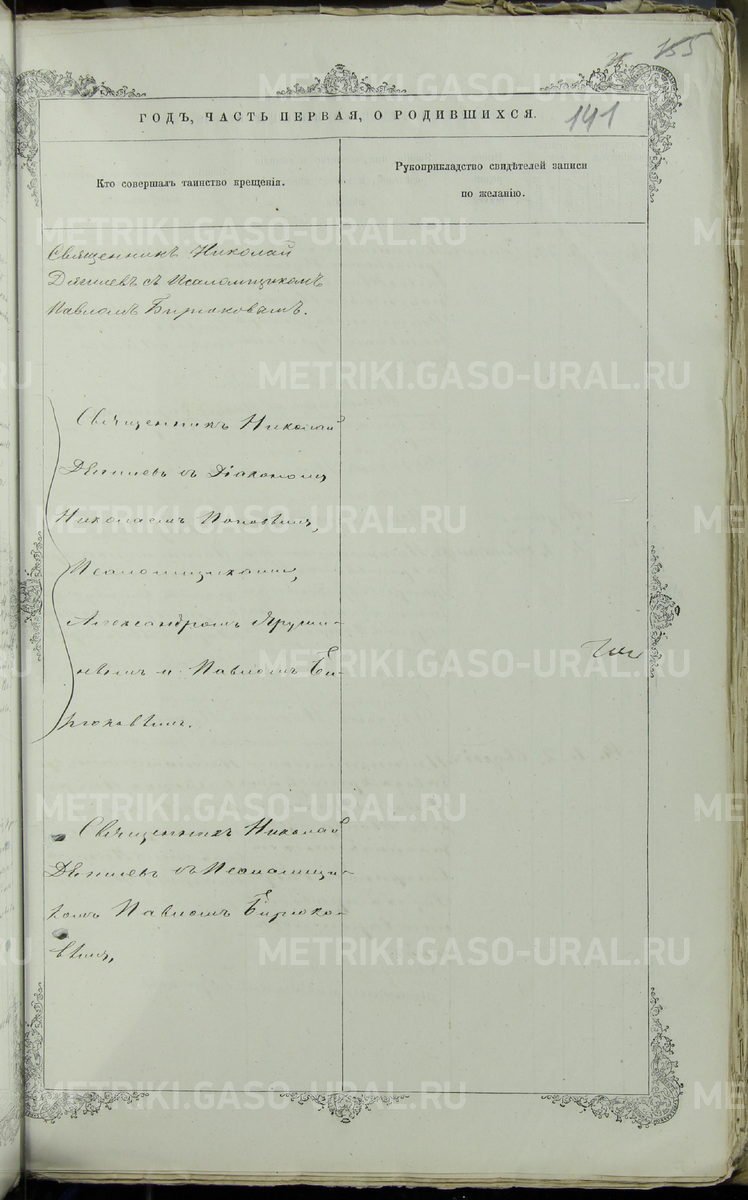 155
ГОДЪ, ЧАСТЬ ПЕРВАЯ, О РОДИВШИХСЯ.
141
Кто совершалъ таинство крещенія.
Рукоприкладство свидѣтелей записи
по желанію.
Священникъ Николай
съ Псаломщикомъ
Павломъ Бирюковымъ.
Священникъ Николай
съ Діакономъ
Николаемъ Поповымъ,
Псаломщиками,
Александромъ Яруши-
нымъ и Павломъ Би-
рюковымъ.
Священникъ Николай
съ Псаломщи-
комъ Павломъ Бирюко-
вымъ,
METRIKI.GASO-URAL.RU